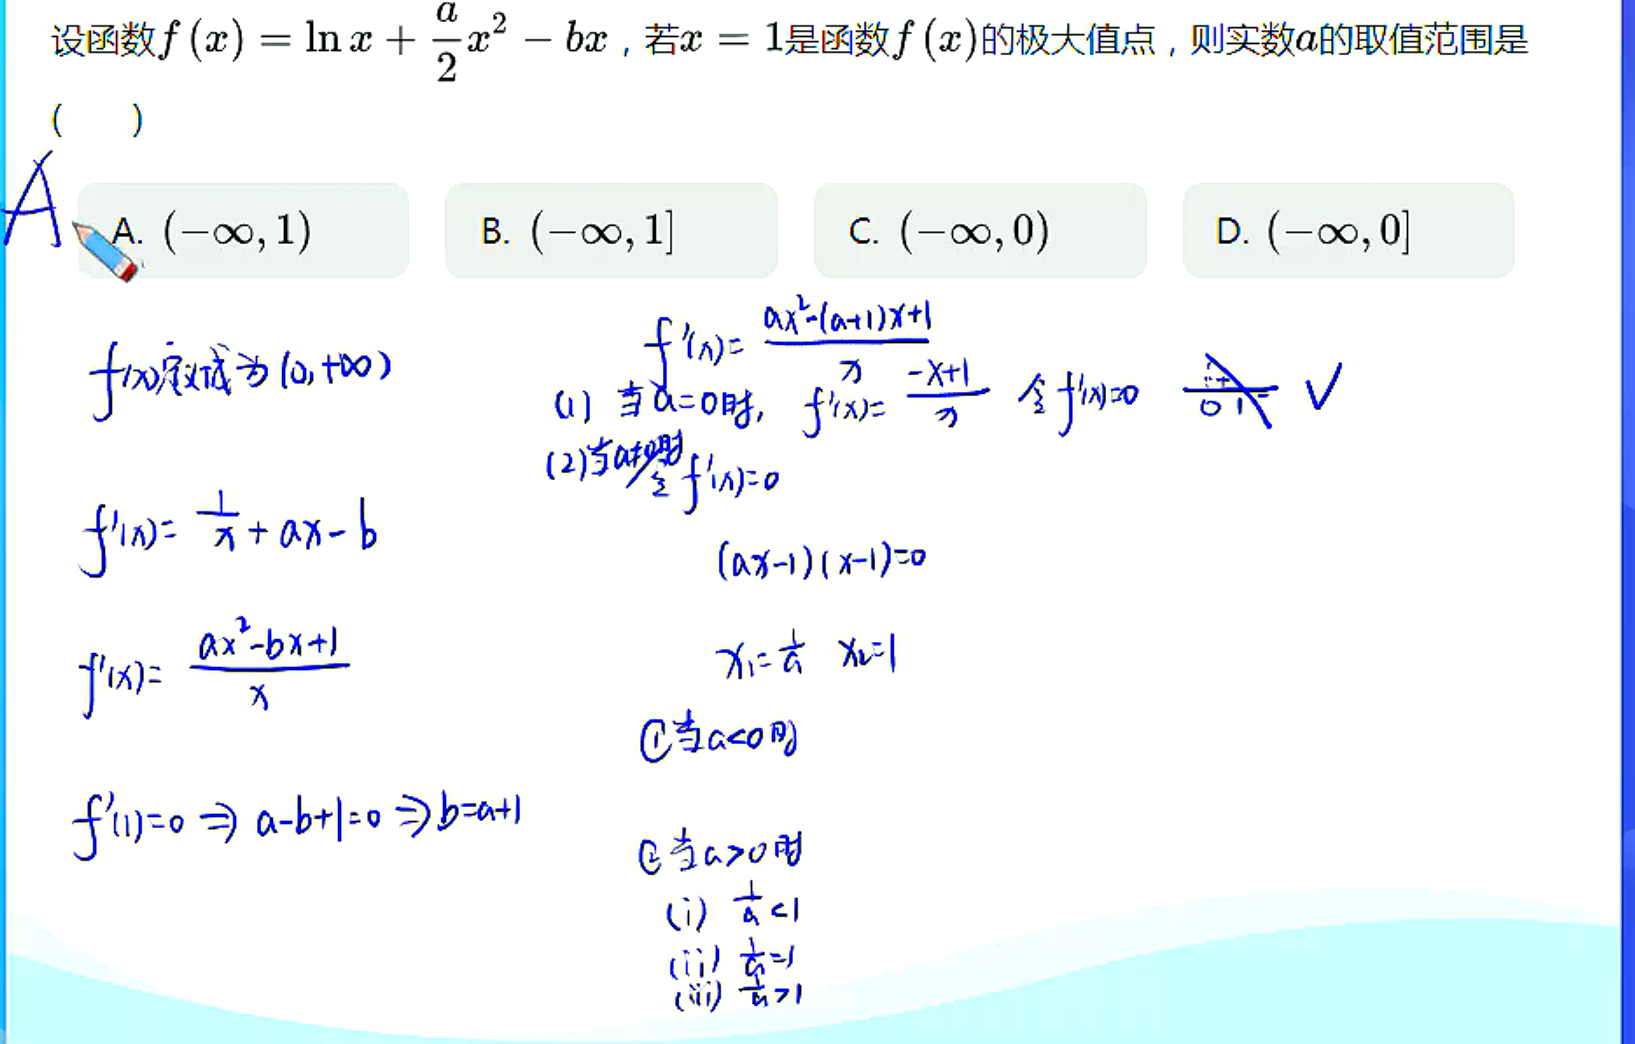 设函数f(x) = ln x + \frac{a}{2}x² − bx，若x = 1是函数f(x)的极大值点，则实数a的取值范围是
(    )
A
A. (−∞, 1)
B. (−∞, 1]
C. (−∞, 0)
D. (−∞, 0]
f(x)定义域为(0,+∞)
f'(x)= \frac{1}{x} + ax - b
f'(x)= \frac{ax²-bx+1}{x}
f'(1)=0 ⇒ a-b+1=0 ⇒ b=a+1
f'(x)= \frac{ax²-(a+1)x+1}{x}
(1) 当a=0时, f'(x)= \frac{-x+1}{x} 令f'(x)=0 + 0 1 - √
(2)当a≠0时 令f'(x)=0
(ax-1)(x-1)=0
x₁=\frac{1}{a} x₂=1
①当a<0时
②当a>0时
(i) \frac{1}{a}<1
(ii) \frac{1}{a}=1
(iii) \frac{1}{a}>1